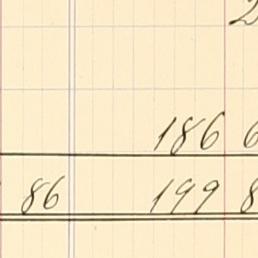 2
186 6
86 199 8